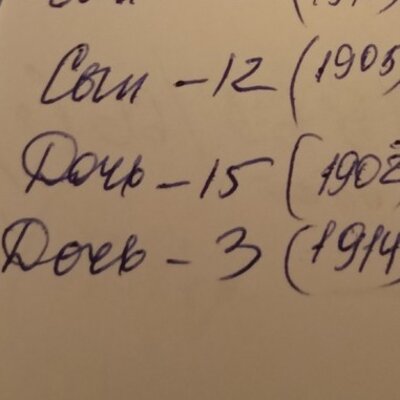 Сын - 12 (1905
Дочь - 15 (1902
Дочь - 3 (1914